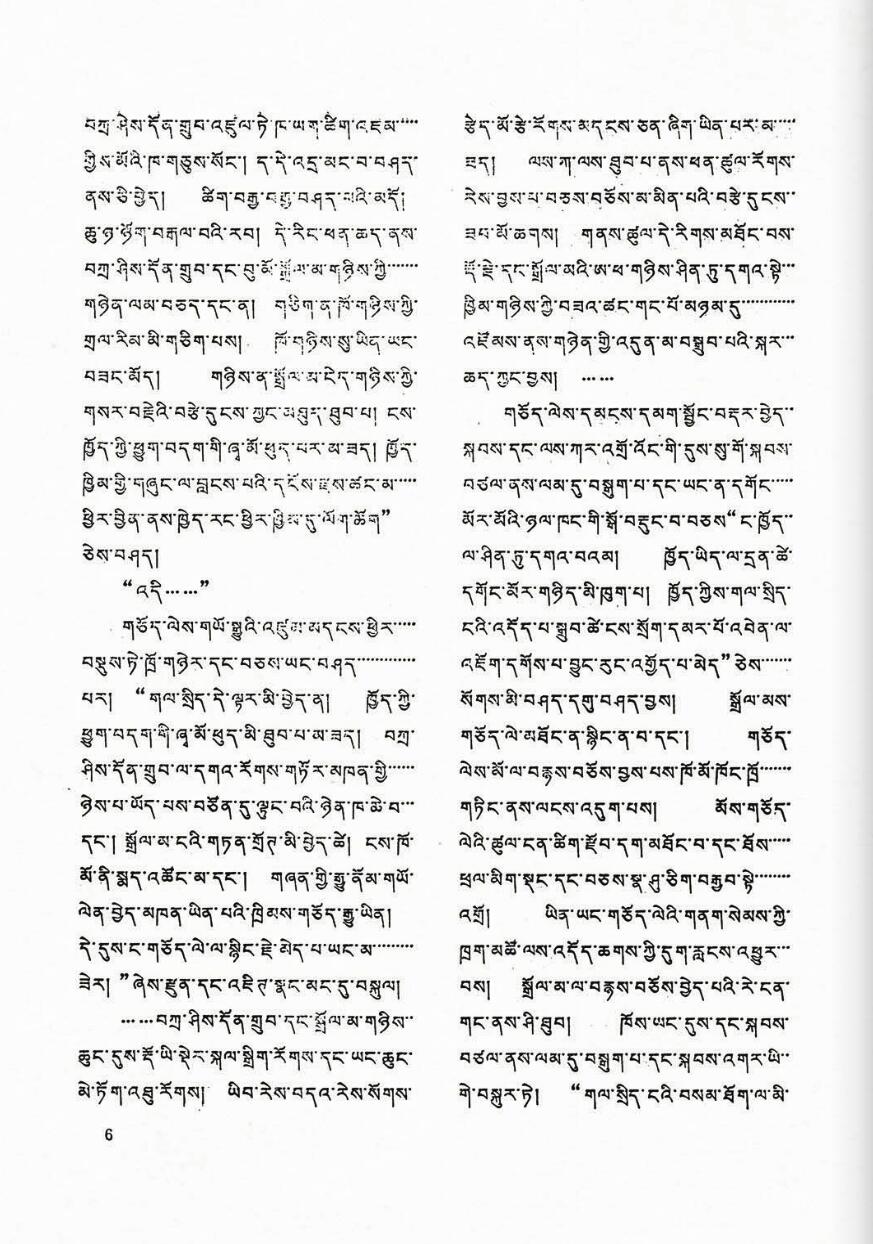 བཀྲ་ཤིས་དོན་གྲུབ་འཛུལ་ཏེ་ཁ་ཡག་ཚིག་འཇམ་····
ཀྱིས་མོའི་ཁ་གཅུས་སོང། ད་དེ་འདྲ་མང་བ་བཤད་
ནས་ཅི་བྱེད། ཚིག་བརྒྱ་བརྒྱ་བཤད་པའི་མདོ།
ཆུ་ཉ་ཉོག་བརྒལ་བའི་རབ། དེ་རིང་ཕན་ཆད་ནས་
བཀྲ་ཤིས་དོན་གྲུབ་དང་བུ་མོ་སྒྲོལ་མ་གཉིས་ཀྱི་······
གཉེན་ལམ་བཅད་དང་ན། གཅིག་ན་ཁོ་གཉིས་ཀྱི་
གྲལ་རིམ་མི་གཅིག་པས། ཁོ་གཉིས་སུ་ཡིད་ཡང་
བཟང་མོད། གཉིས་ན་སྒྲོལ་མ་ངེད་གཉིས་ཀྱི་
གསར་བརྗེའི་བརྩེ་དུངས་ཀྱང་མཐུད་ཐུབ་པ། ངས་
ཁྱོད་ཀྱི་ཕྱུག་བདག་གི་ཞྭ་མོ་ཕུད་པར་མ་ཟད། ཁྱོད་
ཁྱིམ་གྱི་གཞུང་ལ་བླངས་པའི་དངོས་རྫས་ཚང་མ་····
ཕྱིར་བྱིན་ནས་ཁྱེད་རང་ཕྱིར་ཁྱིམ་དུ་ལོག་ཆོག”
ཅེས་བཤད།
“འདི……”
གཅོད་ལེས་གཡོ་སྒྱུའི་འཛུམ་མདངས་ཕྱིར་····
བསྡུས་ཏེ་ཁྲོ་གཉེར་དང་བཅས་ཡང་བཤད་············
པར། “གལ་སྲིད་དེ་ལྟར་མི་བྱེད་ན། ཁྱོད་ཀྱི་
ཕྱུག་བདག་གི་ཞྭ་མོ་ཕུད་མི་ཐུབ་པ་མ་ཟད། བཀྲ་
ཤིས་དོན་གྲུབ་ལ་དགའ་རོགས་གཏོར་མཁན་གྱི་······
ཉེས་པ་ཡོད་པས་བཙོན་དུ་ལྷུང་བའི་ཉེན་ཁ་ཆེ་བ་···
དང་། སྒྲོལ་མ་ངའི་གཏན་གྲོཊ་མི་བྱེད་ཚེ། ངས་ཁོ་
མོ་ནི་སྨད་འཚོང་མ་དང་། གཞན་གྱི་རྒྱུ་ནོམ་གཡོ་
ལེན་བྱེད་མཁན་ཡིན་པའི་ཁྲིམས་གཅོད་རྒྱུ་ཡིན།
དེ་དུས་ང་གཅོད་ལེ་ལ་སྙིང་རྗེ་མེད་པ་ཡང་མ་········
ཟེར། ”ཞེས་རྫུན་དང་འཇིཊ་སྣང་མང་དུ་བསྐུལ།
……བཀྲ་ཤིས་དོན་གྲུབ་དང་སྒྲོལ་མ་གཉིས་··
ཆུང་དུས་རྡོ་ཡི་སྡེར་སྐལ་སྒྲིག་རོགས་དང་ཡང་ཆུང་
མེ་ཏོག་འཐུ་རོགས། ཡིབ་རེས་བདའ་རེས་སོགས་
རྩེད་མོ་རྩེ་རོགས་མདངས་ཅན་ཞིག་ཡིན་པར་མ་····
ཟད། ལས་ཀ་ལས་ཐུབ་པ་ནས་ཕན་ཚུལ་རོགས་
རེས་བྱས་པ་བཅས་བཅོས་མ་མིན་པའི་བརྩེ་དུངས་··
ཟབ་མོ་ཆགས། གནས་ཚུལ་དེ་རིགས་མཐོང་བས་
རྡོ་རྗེ་དང་སྒྲོལ་མའི་ཨ་ཕ་གཉིས་ཤིན་ཏུ་དགའ་སྟེ་···
ཁྱིམ་གཉིས་ཀྱི་བཟའ་ཚང་གང་པོ་མཉམ་དུ་···········
འཛོམས་ནས་གཉེན་གྱི་འདུན་མ་བསྒྲུབ་པའི་སྐར་···
ཆད་ཀྱང་བྱས། ……
གཅོད་ལེས་དམངས་དམག་སྦྱོང་བརྡར་བྱེད་··
སྐབས་དང་ལས་ཀར་འགྲོ་འོང་གི་དུས་སུ་གོ་སྐབས་
བཙལ་ནས་ལམ་དུ་བསྒུག་པ་དང་ཡང་ན་དགོང་·····
མོར་མོའི་ཉལ་ཁང་གི་སྒོ་བརྡུང་བ་བཅས“ང་ཁྱོད་··
ལ་ཤིན་ཏུ་དགའ་བའམ། ཁྱོད་ཡིད་ལ་དྲན་ཚེ་
དགོང་མོར་གཉིད་མི་ཁུག་པ། ཁྱོད་ཀྱིས་གལ་སྲིད་
ངའི་འདོད་པ་སྒྲུབ་ཚེ་ངས་སྲོག་དམར་པོ་འབེན་ལ་
འཛོག་དགོས་པ་བྱུང་རུང་འགྱོད་པ་མེད”ཅེས་······
སོགས་མི་བཤད་དགུ་བཤད་བྱས། སྒྲོལ་མས་
གཅོད་ལེ་མཐོང་ན་སྙིང་ན་བ་དང་། གཅོད་
ལེས་མོ་ལ་བརྙས་བཅོས་བྱས་པས་ཁོ་མོ་ཁོང་ཁྲོ་······
གཏིང་ནས་ལངས་འདུག་པས། མོས་གཅོད་
ལེའི་ཚུལ་ངན་ཚིག་རྫོབ་དག་མཐོང་བ་དང་ཐོས་·····
ཕྲལ་མིག་སྡང་དང་བཅས་སྣ་ཤུ་ཅིག་བརྒྱབ་སྟེ་········
འགྲོ། ཡིན་ཡང་གཅོད་ལེའི་གནག་སེམས་ཀྱི་
ཁྲག་མཚོ་ལས་འདོད་ཆགས་ཀྱི་དུག་རླངས་འཕྱུར་···
བས། སྒྲོལ་མ་ལ་བརྙས་བཅོས་བྱེད་པའི་རེ་ངན་
གང་ནས་ཤི་ཐུབ། ཁོས་ཡང་དུས་དང་སྐབས་
བཙལ་ནས་ལམ་དུ་བསྒུག་པ་དང་སྐབས་འགར་ཡི་··
གེ་བསྐུར་ཏེ། “གལ་སྲིད་ངའི་བསམ་ཐོག་ལ་མི་
6